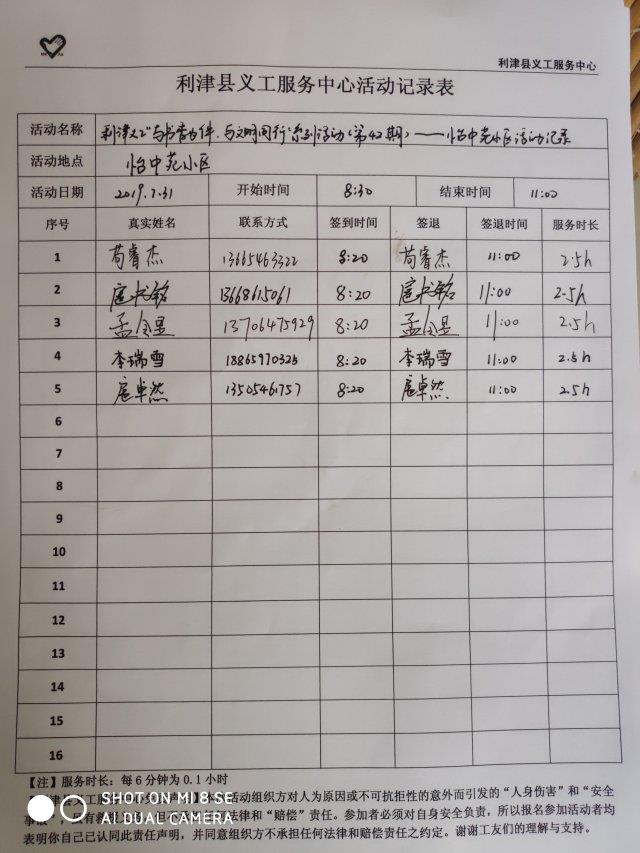 利津县义工服务中心
利津县义工服务中心活动记录表
活动名称 利津义工"与书香为伴,与文明同行"系列活动(第42期)——怡中苑小区活动记录
活动地点 怡中苑小区
活动日期 2019.7.31 开始时间 8:30 结束时间 11:00
序号 真实姓名 联系方式 签到时间 签退 签退时间 服务时长
1 苟睿杰 13665463322 8:20 苟睿杰 11:00 2.5h
2 13668615061 8:20 11:00 2.5h
3 孟令昱 13706475929 8:20 孟令昱 11:00 2.5h
4 李瑞雪 18865970325 8:20 李瑞雪 11:00 2.5h
5 扈卓然 13505461757 8:20 扈卓然 11:00 2.5h
6
7
8
9
10
11
12
13
14
15
16
【注】服务时长:每6分钟为0.1小时
津县义工服 活动组织方对人为原因或不可抗拒性的意外而引发的"人身伤害"和"安全
法律和"赔偿"责任。参加者必须对自身安全负责,所以报名参加活动者均
表明你自己已认同此责任声明,并同意组织方不承担任何法律和赔偿责任之约定。谢谢工友们的理解与支持。
SHOT ON MI 8 SE
AI DUAL CAMERA